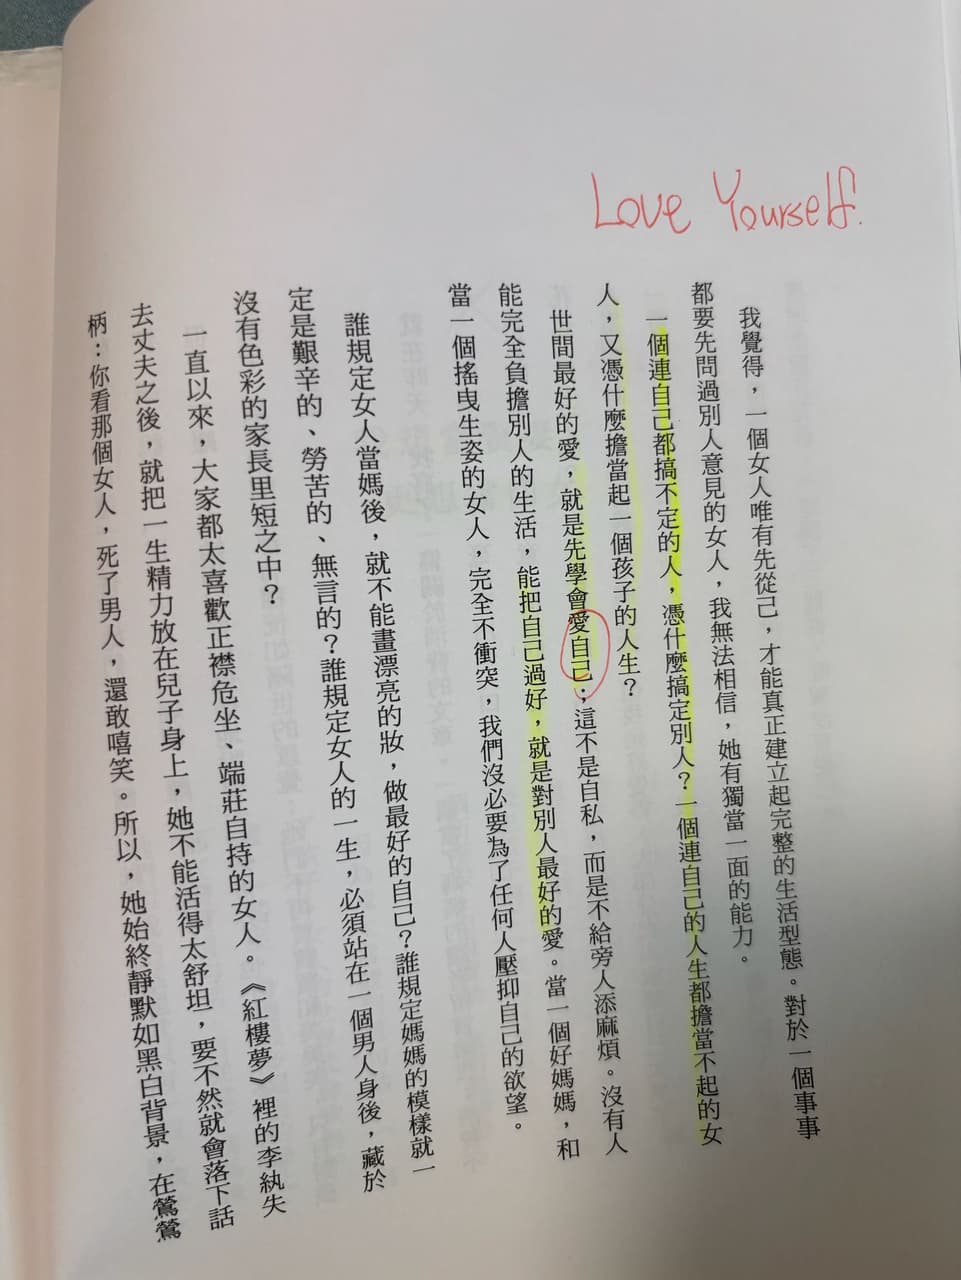 Love Yourself.
我覺得，一個女人唯有先從己，才能真正建立起完整的生活型態。對於一個事事
都要先問過別人意見的女人，我無法相信，她有獨當一面的能力。
一個連自己都搞不定的人，憑什麼搞定別人？一個連自己的人生都擔當不起的女
人，又憑什麼擔當起一個孩子的人生？
世間最好的愛，就是先學會愛自己；這不是自私，而是不給旁人添麻煩。沒有人
能完全負擔別人的生活，能把自己過好，就是對別人最好的愛。當一個好媽媽，和
當一個搖曳生姿的女人，完全不衝突，我們沒必要為了任何人壓抑自己的欲望。
誰規定女人當媽後，就不能畫漂亮的妝，做最好的自己？誰規定媽媽的模樣就一
定是艱辛的、勞苦的、無言的？誰規定女人的一生，必須站在一個男人身後，藏於
沒有色彩的家長里短之中？
一直以來，大家都太喜歡正襟危坐、端莊自持的女人。《紅樓夢》裡的李紈失
去丈夫之後，就把一生精力放在兒子身上，她不能活得太舒坦，要不然就會落下話
柄：你看那個女人，死了男人，還敢嘻笑。所以，她始終靜默如黑白背景，在鶯鶯